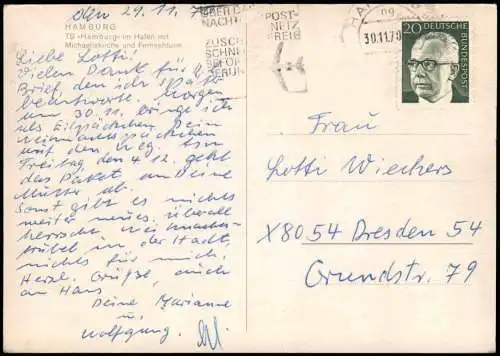 HAMBURG
TS »Hamburg« im Hafen mit
Michaeliskirche und Fernsehturm
den 29.11.70
Liebe Lotti!
Vielen Dank für
Brief, den ich
beantworte. Morgen
um 30.11. bringe ich
als Eilpäckchen Dein
Weihnachtspäckchen
auf den Weg. Am
Freitag den 4.12. geht
das Paket an Deine
Mutter ab.
Sonst gibt es nichts
weiter neues. überall
herrscht Weihnachts-
trubel in der Stadt,
nichts für mich.
Herzl. Grüße, auch
an Hans
Deine Marianne
u.
Wolfgang.
NACH
ZUSCH
SCHNE
BEFÖR
DERUN
POST-
NETZ
FREIB
30.11.70
20
DEUTSCHE BUNDESPOST
Frau
Lotti Wiechers
X8054 Dresden 54
Grundstr. 79